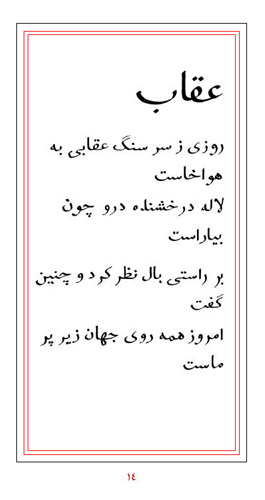 عقاب
روزی ز سر سنگ عقابی به
هواخاست
لاله درخشنده درو چون
بیاراست
بر راستی بال نظر کرد و چنین
گفت
امروز همه روی جهان زیر پر
ماست
١٤